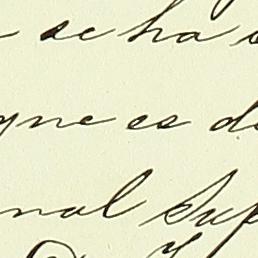 se ha
que es
nal Sup